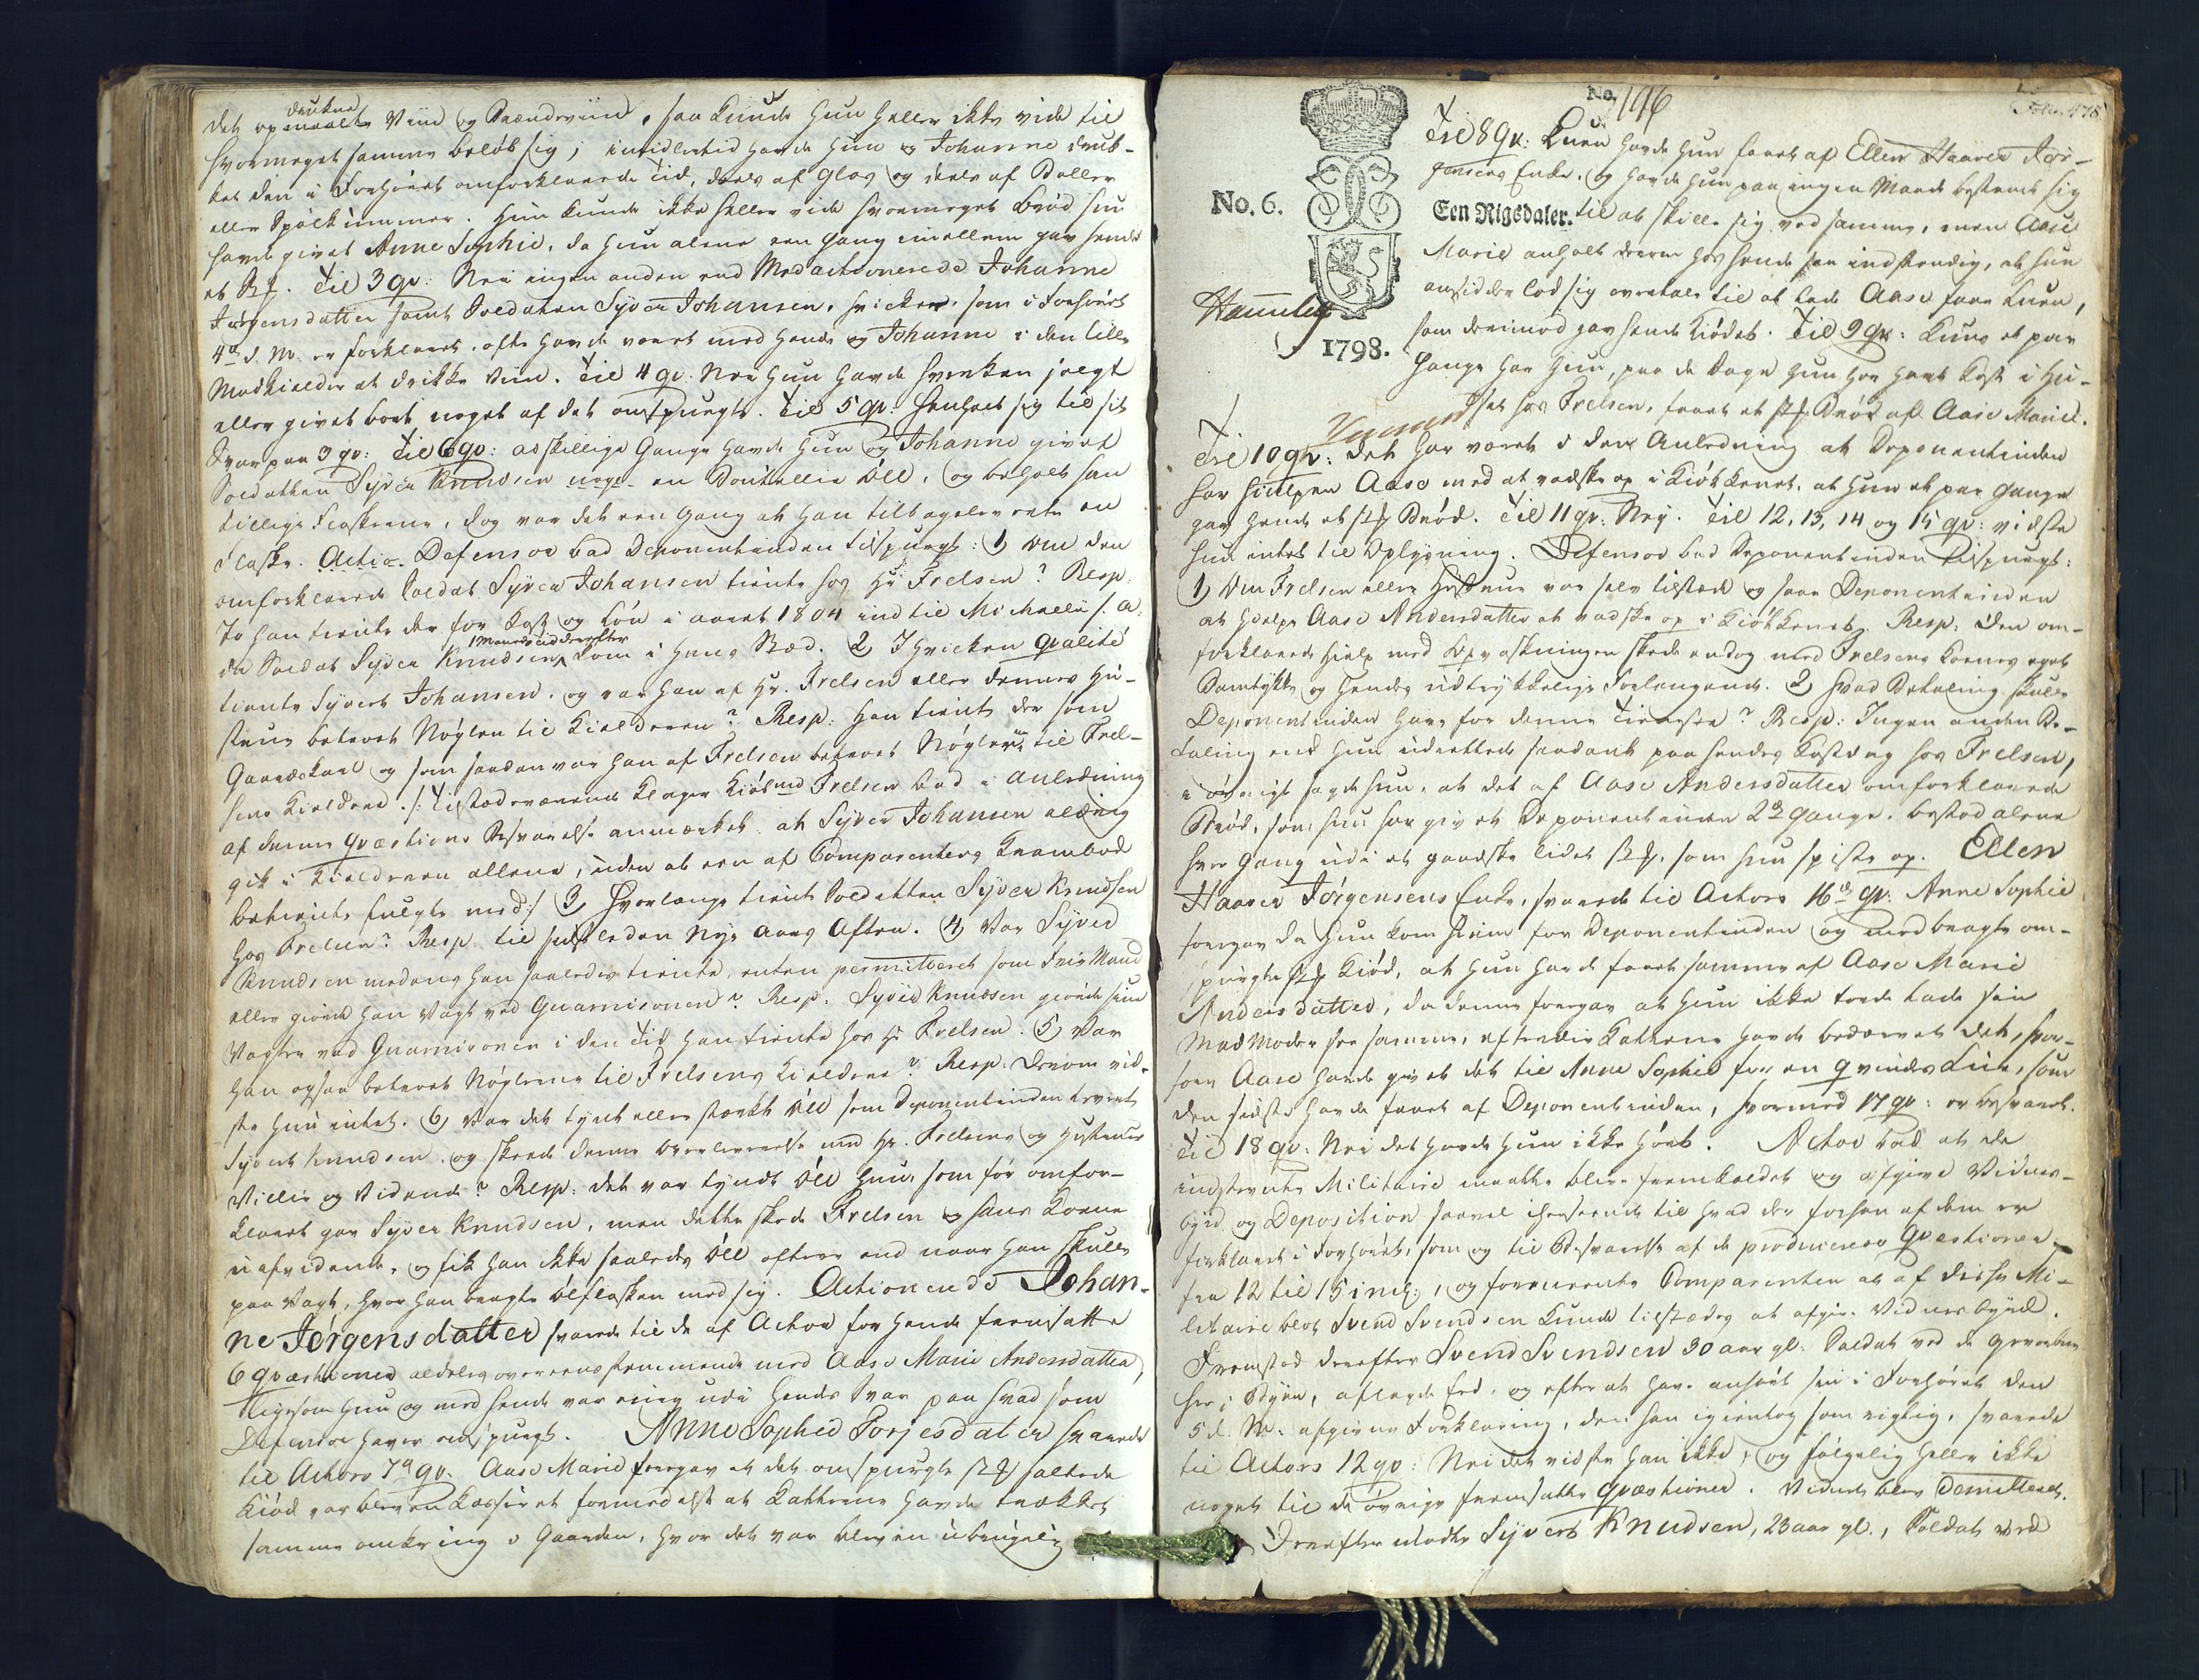 drukne
det opmaalte Viin og Brændeviin, saa kunde hun heller ikke vide til
hvormeget samme beløb sig; imidlertid havde hun og Johanne druk-
ket den i Forhøret omforklarede Tid, deels af Glas og deels af Boller
eller Spølkummer. Hun kunde ikke heller vide hvormeget Brød hun
havde givet Anne Sophie, da hun alene een Gang imellem gav hende
et St. Til 3 qv: Nei ingen anden end Medactionerede Johanne
Jørgensdatter samt Soldaten Syver Johansen, hvilken, som i Forhøret
4de d. M. er forklaret, ofte havde været med hende og Johanne i den lille
Madkielder at drikke Viin. Til 4 qv: Nei hun havde hverken solgt
eller givet bort noget af det omspurgte. Til 5 qv: henholdt sig til sit
Svar paa 3 qv: Til 6 qv: adskillige Gange havde hun og Johanne givet
Soldaten Syver Knudsen en Bouteille Øll, og beholt han
tillige Flaskerne, dog var det een Gang at han tilbageleverede en
Flaske. Actio. Defensor bad Deponentinden tilspurgt: 1) Om den
omforklarede Soldat Syver Johansen tiente hos Hr Frelsen? Resp.
Jo han tiente der for Kost og Løn i aaret 1804 ind til Michaeli s. a.
1 Maaneds tid derefter
da Soldat Syver Knudsen kom i hans Sted. 2) I hvilken qvalité
tiente Syvert Johansen, og var han af Hr. Frelsen eller dennes Hu-
strue betroet Nøglen til Kielderen? Resp: Han tiente der som
Gaardskarl og som saadan var han af Frelsen betroet Nøglerne til Frel-
sens Kieldere. /: Tilstedeværende Klager Kiøbmd Frelsen bad i Anledning
af denne qvæstions Besvarelse anmærket at Syver Johansen aldrig
gik i Kielderen allene, uden at een af Comparentens Krambod
betiente fulgte med :/ 3) Hvorlænge tiente Soldatten Syver Knudsen
hos Frelsen? Resp. til sidstleden Nye Aars Aften. 4) Var Syver
Knudsen medens han saaledes tiente, enten permitteret som Frie Mand
eller giorde han Vagt ved Guarnisonen? Resp: Syver Knudsen giorde sine
Vagter ved Guarnisonen i den Tid han tiente hos Hr Frelsen. 5) Var
han ogsaa betroet Nøglerne til Frelsens Kieldere? Resp: Derom vid-
ste hun intet. 6) Var det tyndt eller stærkt Øll som Deponentinden leverede
Syvert Knudsen, og skeede denne Overleverelse med Hr. Frelsens og Hustrues
Villie og Vidende? Resp: det var tyndt Øll hun, som før omfor-
klaret gav Syver Knudsen, men dette skede Frelsen og hans Kone
uafvidende, og fik han ikke saaledes Øll oftere end naar han skulle
paa Vagt, hvor han bragte Ølflasken med sig. Actionerede Johan-
ne Jørgensdatter svarede til de af Actor for hende fremsatte
6 qvæstioner aldeles overeensstemmende med Aase Marie Andersdatter,
ligesom hun og med hende var eenig udi hendes Svar paa hvad som
Defensor haver omspurgt. Anne Sophie Torjesdatter svarede
til Actors 7de qv. Aase Marie foregav at det omspurgte St saltede
Kiød var bleven kasseret formedelst at Katterne havde trækket
samme omkring i Gaarden, hvor det var bleven ubrugelig
No. 196
Folio 478
No. 6.
Een Rigsdaler.
1798.
Til 8 qv: Luen havde hun faaet af Ellen Haaver Jør-
gensens Enke, og havde hun paa ingen Maade bestemt sig
til at skille sig ved samme, men Aase
Marie anholt derom hos hende saa indstændig, at hun
omsider lod sig overtale til at lade Aase faae Luen,
som derimod gav hende Kiødet. Til 9 qv: Kuns et par
Gange har hun, paa de Dage hun har havt Kost i Hu-
set hos Frelsen, faaet et St Brød af Aase Marie.
Til 10 qv: det har været i den Anledning at Deponentinden
har hiulpen Aase med at vadske op i Kiøkkenet, at hun et par Gange
gav hende et St Brød. Til 11 qv: Nej. Til 12, 13, 14 og 15 qv: vidste
hun intet til Oplysning. Defensor bad Deponentinden tilspurgt:
1) Om Frelsen eller Hustrue var selv tilstæde og saae Deponentinden
at hielpe Aase Andersdatter at vadske op i Kiøkkenet. Resp: Den om-
forklarede Hielp med Opvaskningen skede endog med Frelsens Kones eget
Samtykke og hendes udtrykkelige Forlangende. 2) Hvad Betaling skulle
Deponentinden have for denne Tieneste? Resp: Ingen anden Be-
taling end hun udrettede saadant paa hendes Kostdag hos Frelsen,
i øvrigt sagde hun, at det af Aase Andersdatter omforklarede
Brød, som hun har givet Deponentinden 2de Gange, bestod alene
hver Gang udi et gandske lidet St, som hun spiste op. Ellen
Haaver Jørgensens Enke, svarede til Actors 16de qv. Anne Sophie
foregav da hun kom hiem for Deponentinden og medbragte om-
spurgte St Kiød, at hun havde faaet samme af Aase Marie
Andersdatter, da denne foregav at hun ikke torde lade sin
Madmoder see samme, efterdi Katterne havde bedærvet det, hvor-
for Aase havde givet det til Anne Sophie for en qvindes Lue, som
den sidste havde faaet af Deponentinden, hvormed 17 qv: er besvaret.
Til 18 qv: Nei det havde hun ikke hørt. Actor bad at de
indstevnte Militaire maatte blive fremkaldet og afgive Vidnes-
byrd og Deposition saavel i henseende til hvad der forhen af dem er
forklaret i Forhøret, som og til Besvarelse af de producerede Qvæstioner
fra 12 til 15 incl:, og fornemte Comparenten at af disse Mi-
litaire blot Svend Svendsen kunde tilstædes at afgive Vidnesbyrd.
Fremstod derefter Svend Svendsen 30 aar gl. Soldat ved de Gevorbne
her i Byen, aflagde Eed, og efter at have anhørt sin i Forhøret den
5 d. M. afgivne Forklaring, den han igientog som rigtig, svarede
til Actors 12 qv: Nei det vidste han ikke, og følgelig heller ikke
noget til de øvrige fremsatte qvæstioner. Vidnet blev demitteret.
Derefter mødte Syvert Knudsen, 23 aar gl., Soldat ved